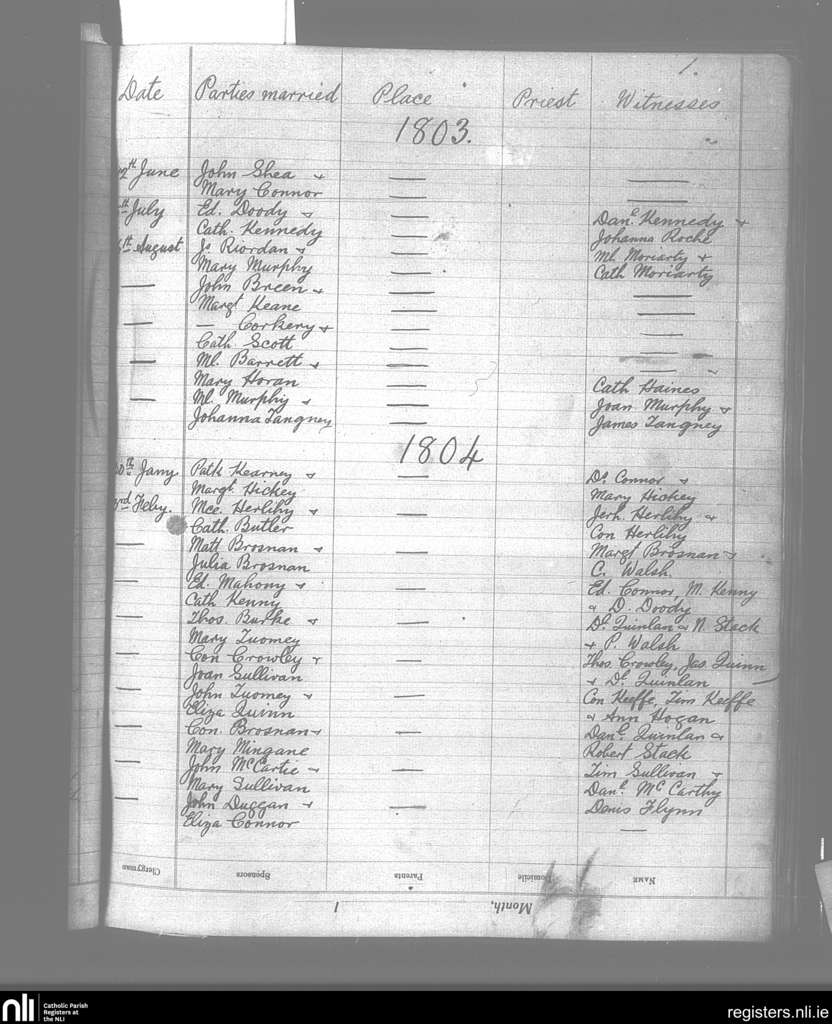 1.
Date Parties married Place Priest Witnesses
1803.
2th June John Shea & — —
Mary Connor — —
th July Ed. Doody & — Danl Kennedy &
Cath. Kennedy — Johanna Roche
6th August Js Riordan & — Ml. Moriarty &
Mary Murphy — Cath Moriarty
— John Breen & — —
Margt Keane — —
— — Corkery & — —
Cath. Scott — —
— Ml. Barrett & — —
Mary Horan — Cath Haines
— Ml. Murphy & — Joan Murphy &
Johanna Tangney — James Tangney
1804
0th Jany Patk Kearney & — Ds. Connor &
Margt Hickey Mary Hickey
3rd Feby. Mce. Herlihy & — Jerh. Herlihy &
Cath. Butler Con Herlihy
— Matt Brosnan & — Margt Brosnan &
Julia Brosnan C. Walsh.
— Ed. Mahony & — Ed. Connor, M. Kenny
Cath Kenny & D. Doody
— Thos. Burke & — Dl. Quinlan & N. Stack
Mary Tuomey & P. Walsh
— Con Crowley & — Thos. Crowley, Jas. Quinn
Joan Sullivan & Dl. Quinlan
— John Tuomey & — Con Keeffe, Tim Keeffe
Eliza Quinn & Ann Hogan
— Con. Brosnan & — Danl. Quinlan &
Mary Mingane Robert Stack
— John McCartie & — Tim Sullivan &
Mary Sullivan Danl. McCarthy
— John Duggan & — Denis Flynn
Eliza Connor —
Clergyman Sponsors Parents Domicile NAME
1 Month,
nli Catholic Parish
Registers at
the NLI
registers.nli.ie